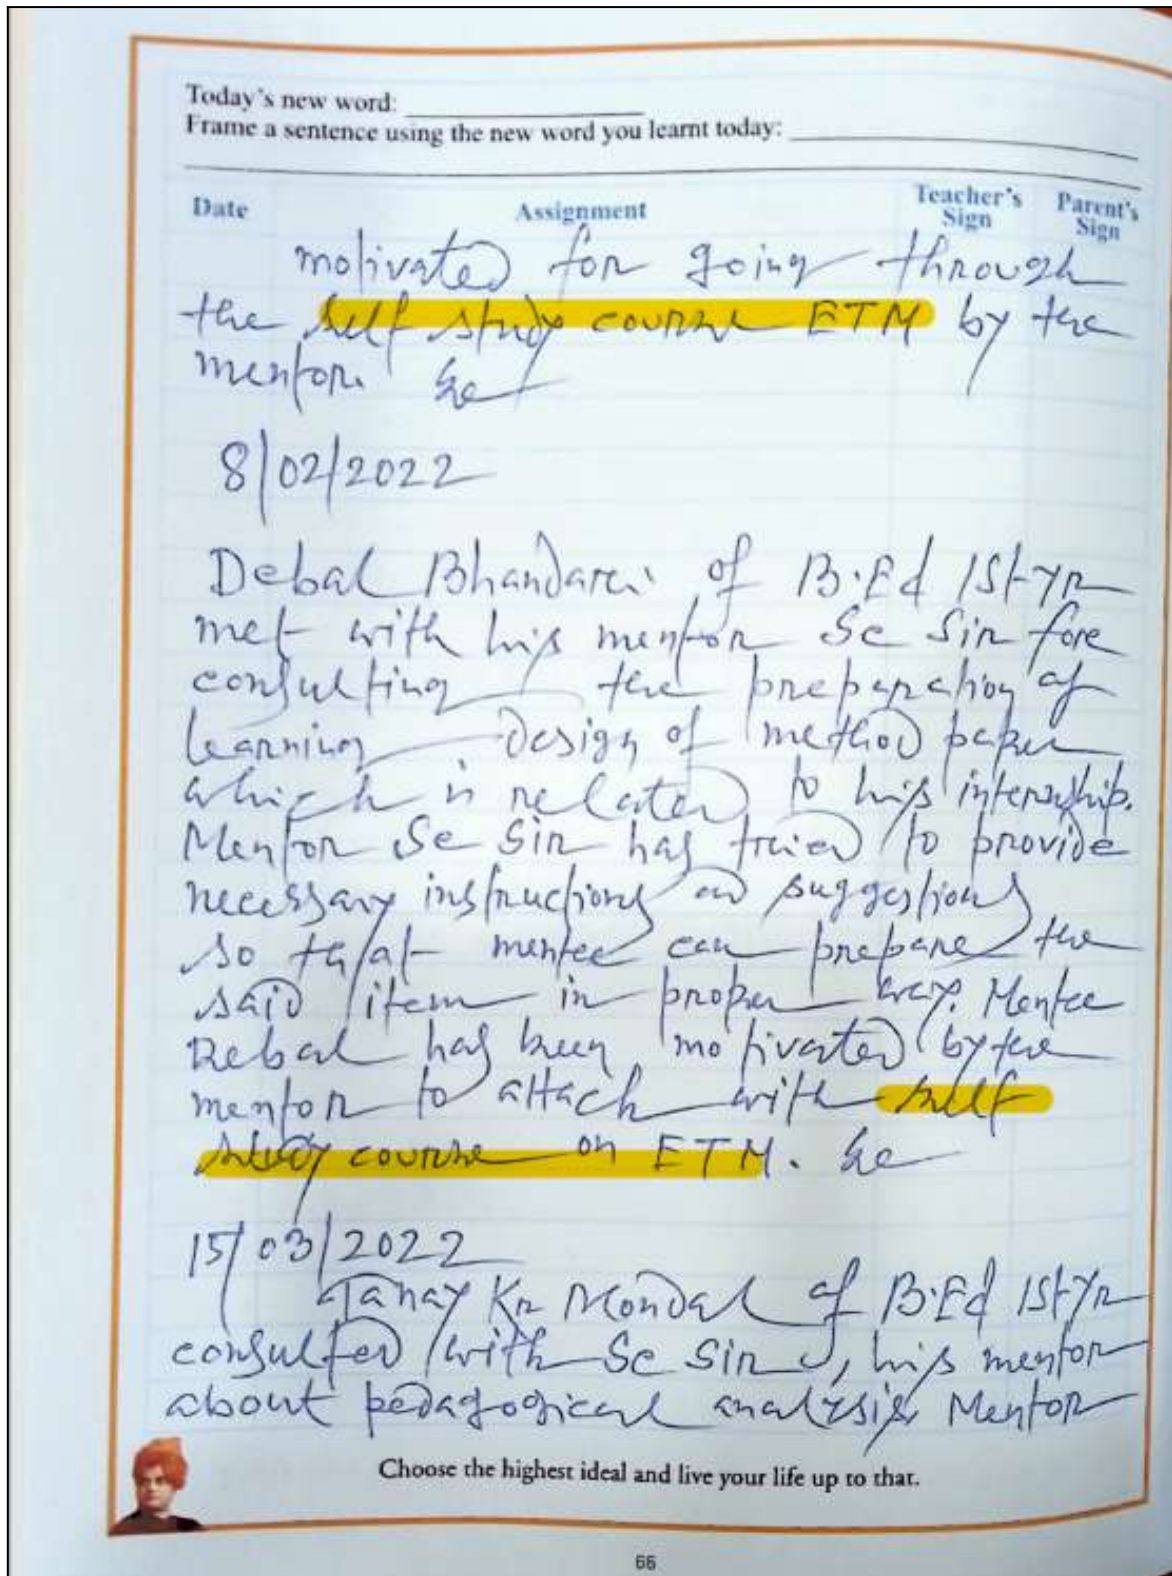 Today's new word:
Frame a sentence using the new word you learnt today:
Date Assignment Teacher's Sign Parent's Sign
motivated for going through
the self study course ETM by the
mentor. Sc
8/02/2022
Debal Bhandari of B.Ed 1St yr
met with his mentor Sc Sir fore
consulting the preparation of
learning design of method paper
which is related to his internship.
Mentor Sc Sir has tried to provide
necessary instructions and suggestions
so that mentee can prepare the
said item in proper way. Mentee
Debal has been motivated by the
mentor to attach with self
study course on ETM. Sc
15/03/2022
Tanay Kr Mondal of B.Ed 1St Yr
consulted with Sc Sir, his mentor
about pedagogical analysis. Mentor
Choose the highest ideal and live your life up to that.
66